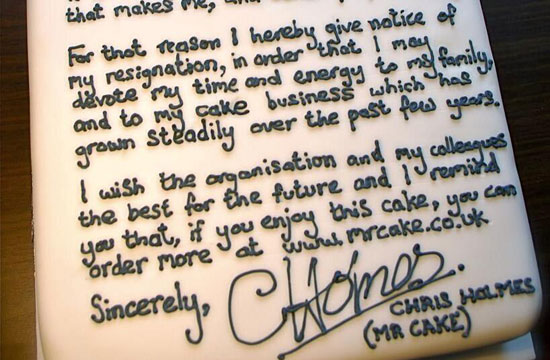 that makes me, and
For that reason I hereby give notice of
my resignation, in order that I may
devote my time and energy to my family,
and to my cake business which has
grown steadily over the past few years.
I wish the organisation and my colleagues
the best for the future and I remind
you that, if you enjoy this cake, you can
order more at www.mrcake.co.uk
Sincerely,
CHolmes.
CHRIS HOLMES
(MR CAKE)